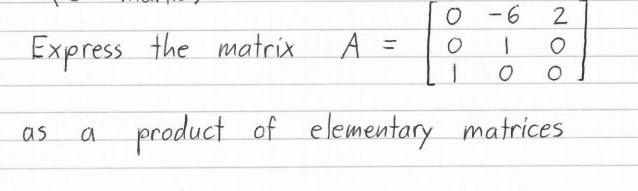 Express the matrix A = [0 -6 2
0 1 0
1 0 0]
as a product of elementary matrices